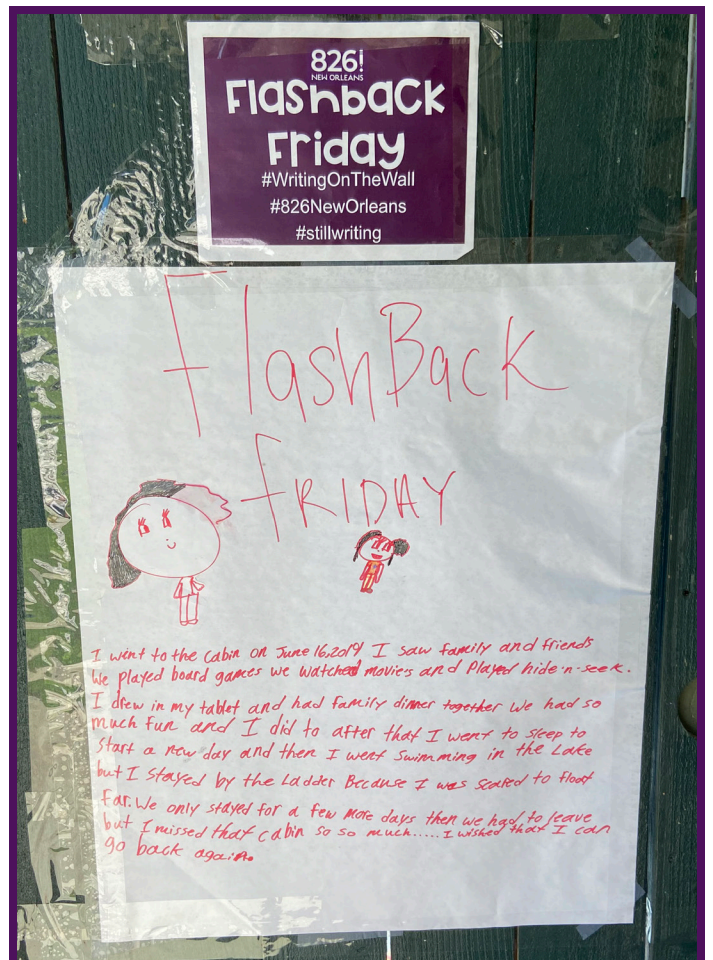 826!
NEW ORLEANS
Flashback
Friday
#WritingOnTheWall
#826NewOrleans
#stillwriting
FlashBack
FRIDAY
I went to the cabin on June 16,2019 I saw family and friends
We played board games we watched movies and Played hide-n-seek.
I drew in my tablet and had family dinner together we had so
much fun and I did to after that I went to sleep to
start a new day and then I went swimming in the Lake
but I stayed by the Ladder Because I was scared to float
far. We only stayed for a few more days then we had to leave
but I missed that cabin so so much..... I wished that I can
go back again.